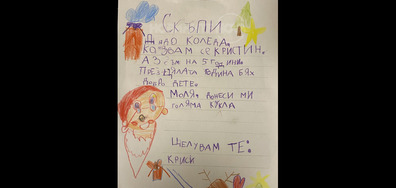 СКЪПИ
ДЯДО КОЛЕДА.
КАЗВАМ СЕ КРИСТИН.
АЗ СЪМ НА 5 ГОДИНИ.
ПРЕЗ ЦЯЛАТА ГОДИНА БЯХ
ДОБРО ДЕТЕ.
МОЛЯ. ДОНЕСИ МИ
ГОЛЯМА КУКЛА
ЦЕЛУВАМ ТЕ:
КРИСИ